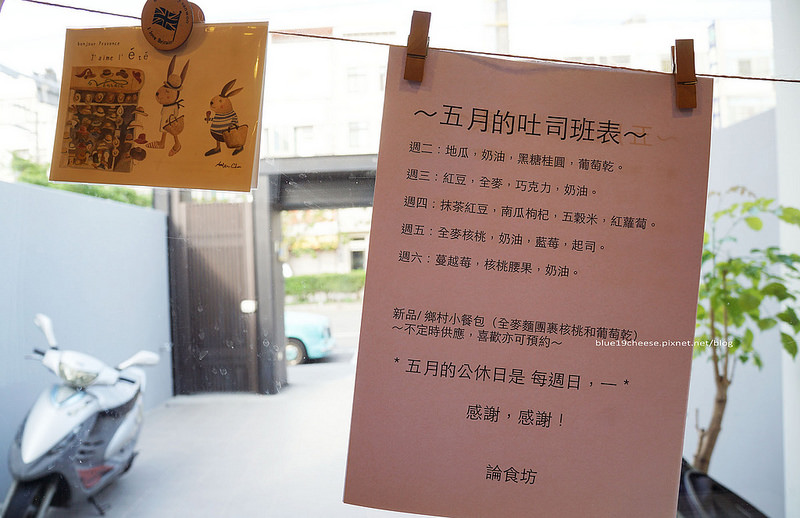 Bonjour Provence
J'aime l'été
～五月的吐司班表～
週二：地瓜，奶油，黑糖桂圓，葡萄乾。
週三：紅豆，全麥，巧克力，奶油。
週四：抹茶紅豆，南瓜枸杞，五穀米，紅蘿蔔。
週五：全麥核桃，奶油，藍莓，起司。
週六：蔓越莓，核桃腰果，奶油。
新品/ 鄉村小餐包（全麥麵團裹核桃和葡萄乾）
～不定時供應，喜歡亦可預約～
blue19cheese.pixnet.net/blog
* 五月的公休日是 每週日，一 *
感謝，感謝！
論食坊